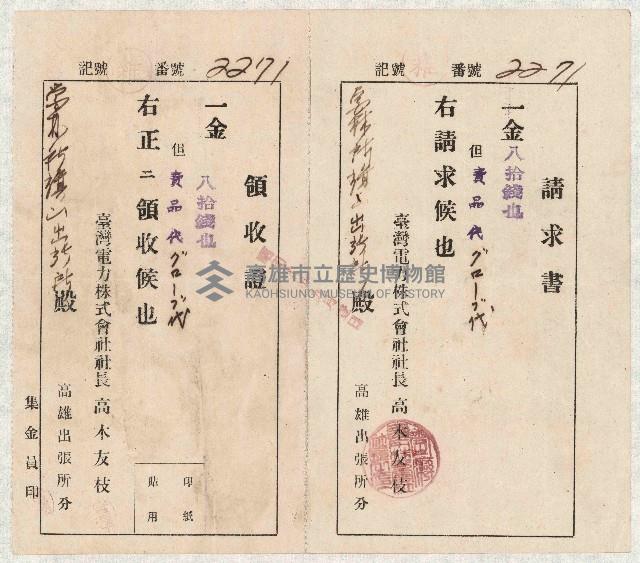 記號 番號 2271
請求書
一金八拾錢也
但賣品代グローブ代
右請求候也
臺灣電力株式會社社長 高木友枝
高雄出張所分
出張所殿
記號 番號 2271
領收證
一金 八拾錢也
但賣品代グローブ代
右正ニ領收候也
臺灣電力株式會社社長 高木友枝
高雄出張所分
旗山出張所殿
印紙
貼用
集金員印
高雄市立歷史博物館
KAOHSIUNG MUSEUM OF HISTORY